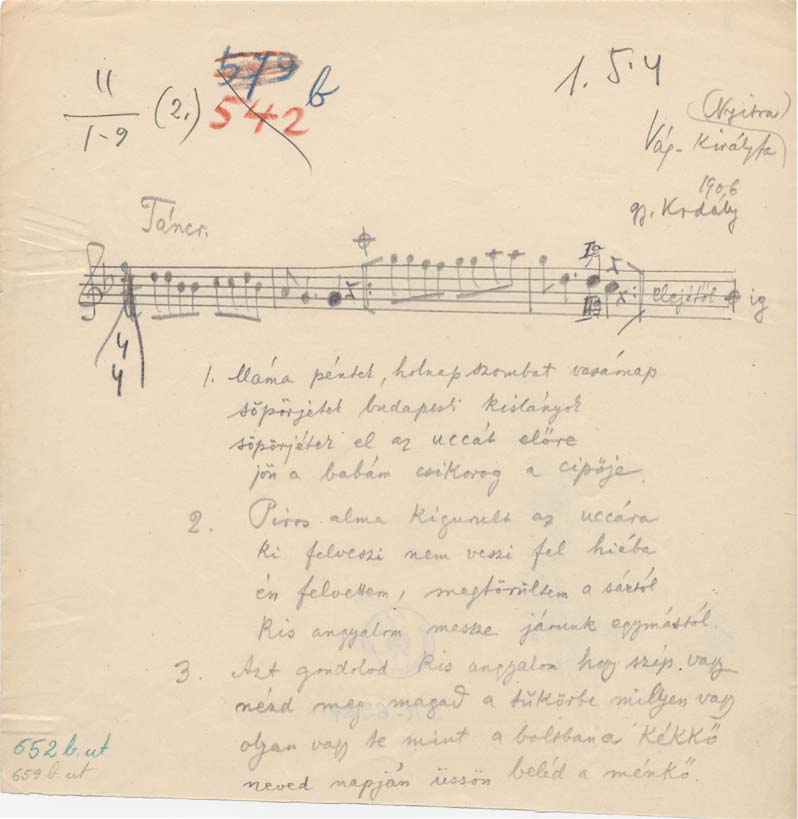 11
1-9
(2.)
579
542
b
1. 5. 4
(Nyitra)
Vág-Királyfa
1906
gy. Kodály
Táncz.
4
4
elejétől
ig
1. Máma péntek, holnap szombat vasárnap
söpörjétek budapesti kislányok
söpörjétek el az uccát előre
jön a babám csikorog a cipője.
2. Piros alma kigurult az uccára
ki felveszi nem veszi fel hiába
én felvettem, megtörültem a sártól
kis angyalom messze járunk egymástól.
3. Azt gondolod kis angyalom hogy szép vagy
nézd meg magad a tükörbe milyen vagy
olyan vagy te mint a boltban a kékkő
neved napján üssön beléd a ménkő.
652 b. ut
659 b. ut